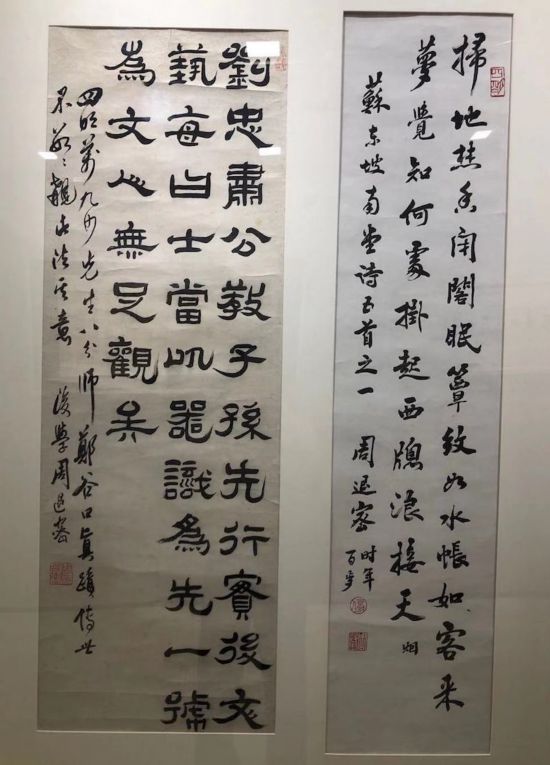 掃地焚香閉閣眠簟紋如水帳如客来
夢覺知何處掛起西牕浪接天 烟
蘇东坡南堂诗五首之一 周退密 时年百岁
劉忠肅公教子孫先行實後文
藝每曰士當以器識為先一號
為文人無足觀矣
四明萬九沙先生八分師鄭谷口真蹟傳世
不 覯 法其意 後學周退密